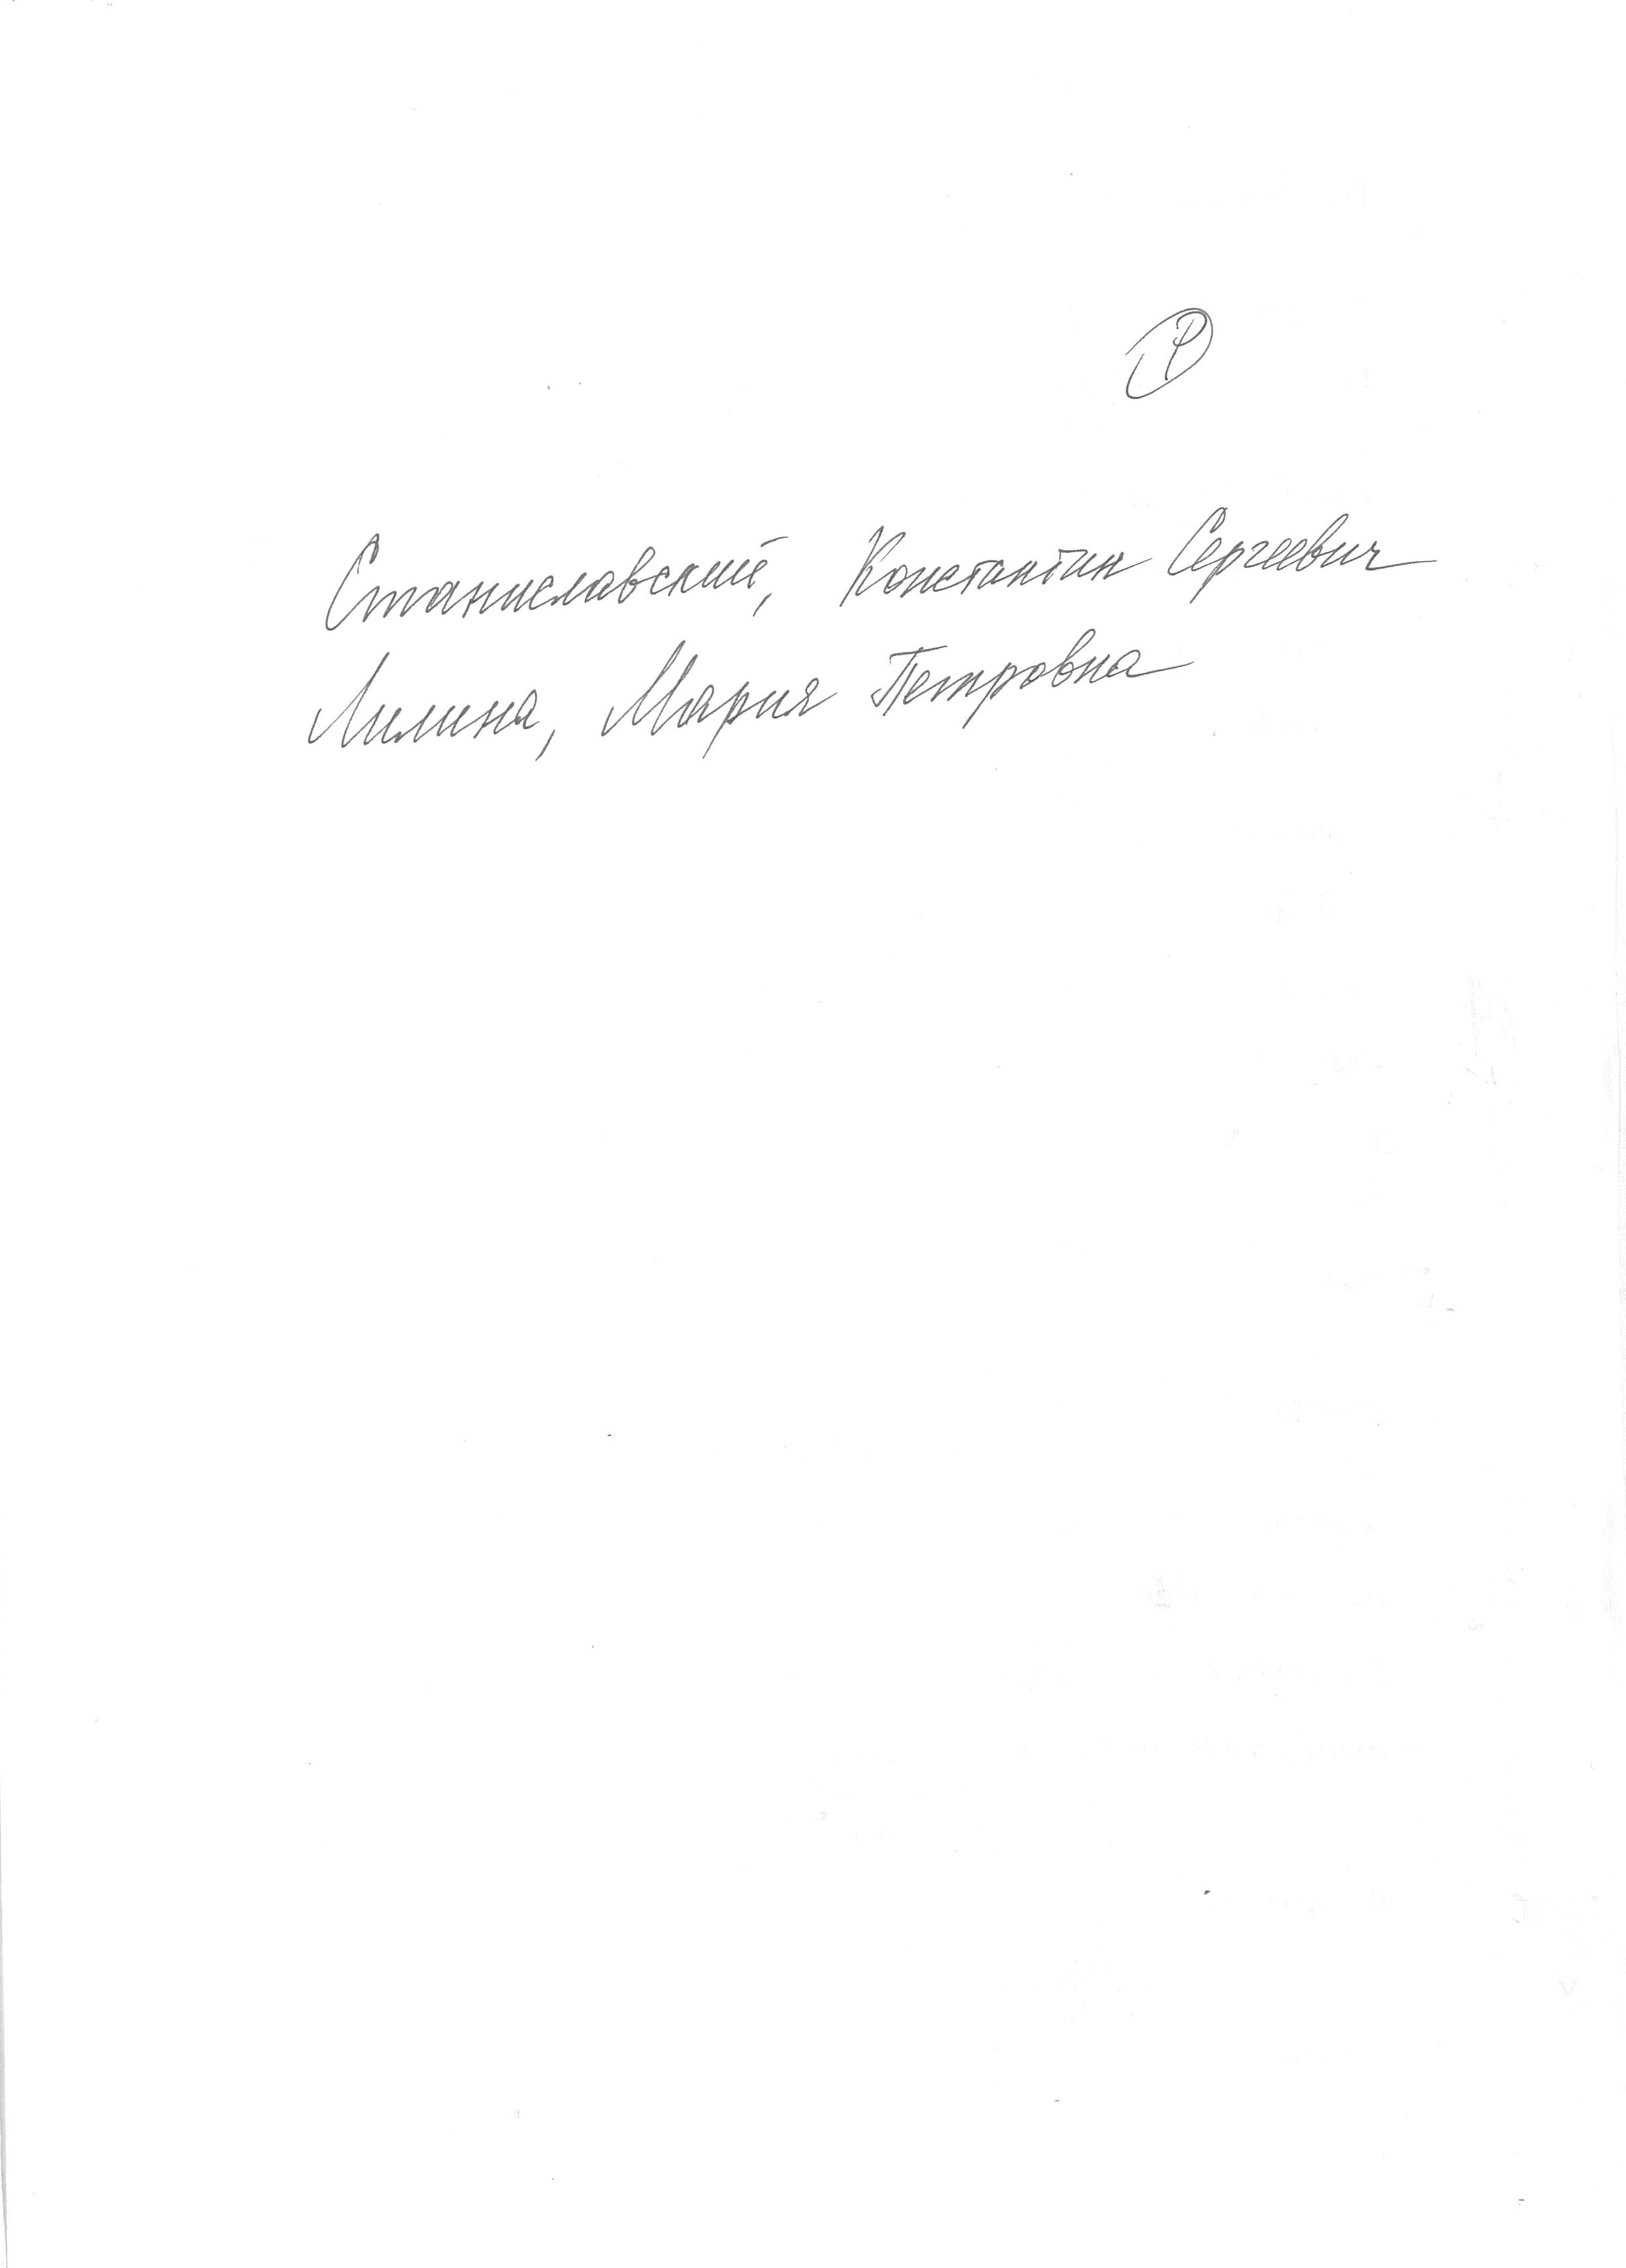 Р
Станиславский, Константин Сергеевич
Лилина, Мария Петровна